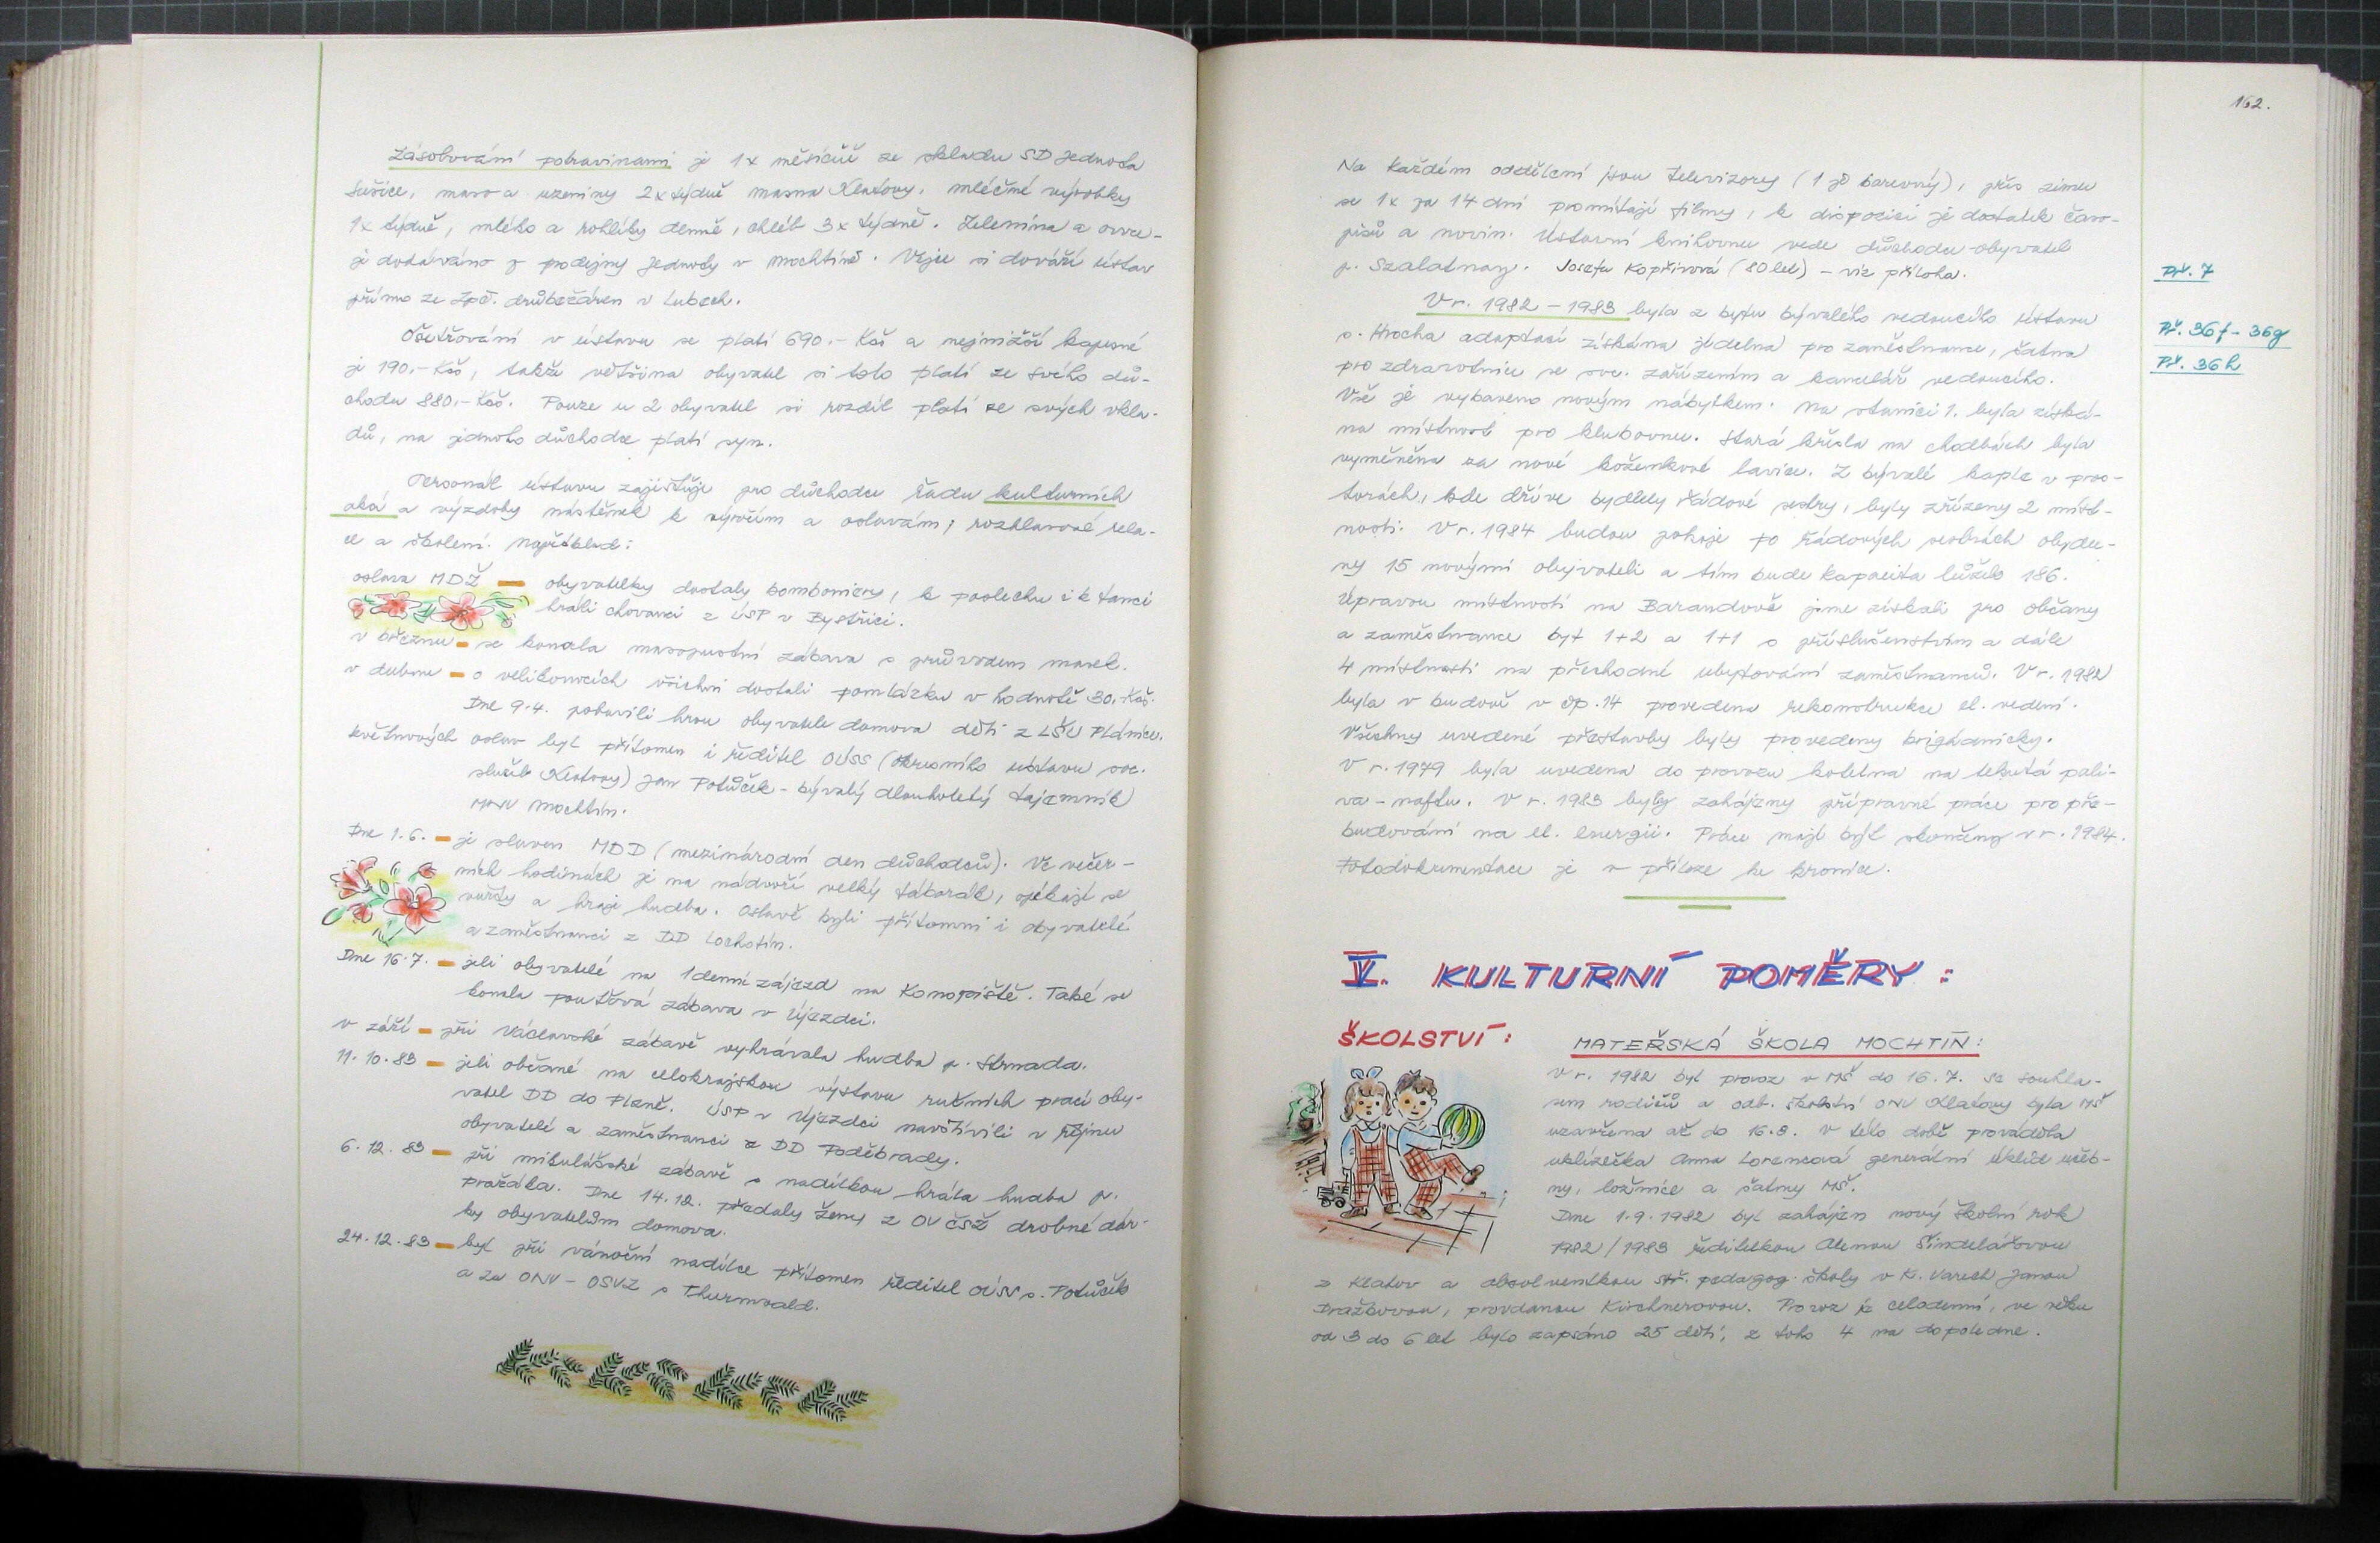 Zásobování potravinami je 1x měsíčně ze skladu SD Jednota
Sušice, maso a uzeniny 2x týdně masna Klatovy, mléčné výrobky
1x týdně, mléko a rohlíky denně, chléb 3x týdně. Zelenina a ovoce
je dodáváno z prodejny Jednoty v Mochtíně. Vejce si dováží ústav
přímo ze Zpč. drůbežáren v Lubech.
Ošetřování v ústavu se platí 690.- Kčs a nejnižší kapesné
je 190.- Kčs, takže většina obyvatel si toto platí ze svého dů-
chodu 880.- Kčs. Pouze u 2 obyvatel si rozdíl platí ze svých vkla-
dů, na jednoho důchodce platí syn.
Personál ústavu zajišťuje pro důchodce řadu kulturních
akcí a výzdoby nástěnek k výročím a oslavám, rozhlasové rela-
ce a školení. Například:
oslava MDŽ — obyvatelky dostaly bomboniéry, k poslechu i k tanci
hráli chovanci z ÚSP v Bystřici.
v březnu - se konala masopustní zábava s průvodem masek.
v dubnu - o velikonocích všichni dostali pomlázku v hodnotě 30.- Kčs.
Dne 9.4. pobavili hrou obyvatele domova děti z LŠU Plánice.
květnových oslav byl přítomen i ředitel OÚSS (okresního ústavu soc.
služeb Klatovy) Jan Potůček - bývalý dlouholetý tajemník
MNV Mochtín.
Dne 1.6. - je slaven MDD (mezinárodní den důchodců). Ve večer-
ních hodinách je na nádvoří velký táborák, opékají se
vuřty a hraje hudba. Oslavě byli přítomni i obyvatelé
a zaměstnanci z DD Lochotín.
Dne 16.7. - jeli obyvatelé na 1denní zájezd na Konopiště. Také se
konala pouťová zábava v Újezdci.
v září - při Václavské zábavě vyhrávala hudba p. Strnada.
11.10.83 - jeli občané na celokrajskou výstavu ručních prací oby-
vatel DD do Plzně. ÚSP v Újezdci navštívili v říjnu
obyvatelé a zaměstnanci z DD Poděbrady.
6.12.83 - při mikulášské zábavě s nadílkou hrála hudba p.
Pražáka. Dne 14.12. předaly ženy z OV ČSŽ drobné dár-
ky obyvatelům domova.
24.12.83 - byl při vánoční nadílce přítomen ředitel OÚSS s. Potůček
a za ONV - OSVZ s Thurnwald.
162.
Na každém oddělení jsou televizory (1 je barevný), přes zimu
se 1x za 14 dní promítají filmy, k dispozici je dostatek časo-
pisů a novin. Ústavní knihovnu vede důchodce-obyvatel
p. Szalatnay. Josefa Kopřivová (80 let) - viz příloha.
Př. 7
V r. 1982 - 1983 byla z bytu bývalého vedoucího ústavu
s. Hrocha adaptací získána jídelna pro zaměstnance, šatna
pro zdravotnice se soc. zařízením a kancelář vedoucího.
Př. 36f - 36g
Př. 36h
Vše je vybaveno novým nábytkem. Na stanici 1. byla získá-
na místnost pro klubovnu. Stará křesla na chodbách byla
vyměněna za nové koženkové lavice. Z bývalé kaple v pros-
torách, kde dříve bydlely řádové sestry, byly zřízeny 2 míst-
nosti. V r. 1984 budou pokoje po řádových sestrách obsaze-
ny 15 novými obyvateli a tím bude kapacita lůžek 186.
Úpravou místností na Barandově jsme získali pro občany
a zaměstnance byt 1+2 a 1+1 s příslušenstvím a dále
4 místnosti na přechodné ubytování zaměstnanců. V r. 1982
byla v budově v čp. 14 provedena rekonstrukce el. vedení.
Všechny uvedené přestavby byly provedeny brigádnicky.
V r. 1979 byla uvedena do provozu kotelna na tekutá pali-
va - naftu. V r. 1983 byly zahájeny přípravné práce pro pře-
budování na el. energii. Práce mají být skončeny v r. 1984.
Fotodokumentace je v příloze ke kronice.
V. KULTURNÍ POMĚRY:
ŠKOLSTVÍ:
MATEŘSKÁ ŠKOLA MOCHTÍN:
V r. 1982 byl provoz v MŠ do 16.7. Se souhla-
sem rodičů a odb. školství ONV Klatovy byla MŠ
uzavřena až do 16.8. V této době prováděla
uklízečka Anna Lorencová generální úklid učeb-
ny, ložnice a šatny MŠ.
Dne 1.9.1982 byl zahájen nový školní rok
1982/1983 ředitelkou Alenou Šindelářovou
z Klatov a absolventkou stř. pedagog. školy v K. Varech Janou
Dražkovou, provdanou Kirchnerovou. Provoz je celodenní, ve věku
od 3 do 6 let bylo zapsáno 25 dětí, z toho 4 na dopoledne.